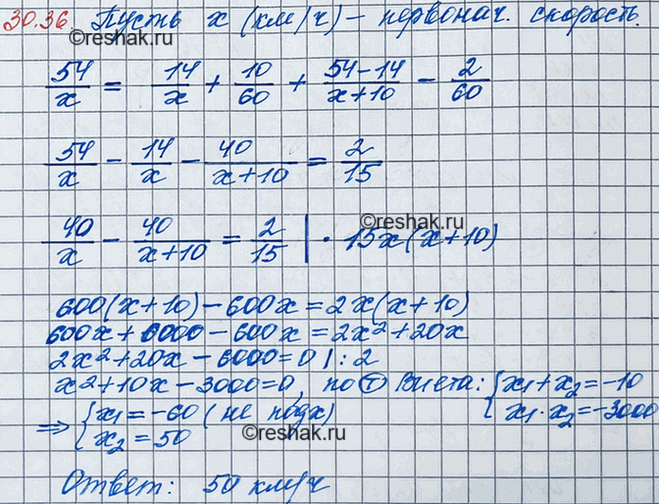 30.36 Пусть x (км/ч) – первонач. скорость.
©reshak.ru
54/x = 14/x + 10/60 + (54-14)/(x+10) - 2/60
54/x - 14/x - 40/(x+10) = 2/15
©reshak.ru
40/x - 40/(x+10) = 2/15 | · 15x(x+10)
600(x+10) - 600x = 2x(x+10)
600x + 6000 - 600x = 2x² + 20x
2x² + 20x - 6000 = 0 | : 2
x² + 10x - 3000 = 0, по Ⓣ Виета: { x₁ + x₂ = -10
x₁ · x₂ = -3000
⇒ { x₁ = -60 (не подх)
x₂ = 50
©reshak.ru
Ответ: 50 км/ч